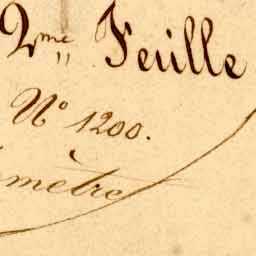 2me Feuille
No 1200.
mètre